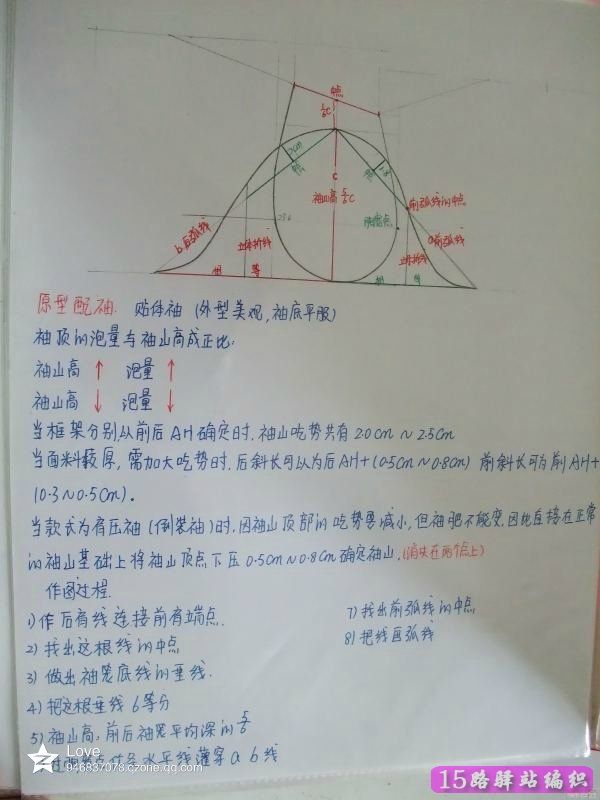 中点
1/6C
2cm
中点
1.8
C
袖山高 5/6C
前弧线的中点
b后弧线
a前弧线
立体折线
立体折线
相 等
相 等
原型配袖. 贴体袖 (外型美观,袖底平服)
袖顶的泡量与袖山高成正比:
袖山高 ↑ 泡量 ↑
袖山高 ↓ 泡量 ↓
当框架分别以前后AH确定时,袖山吃势共有2.0cm~2.5cm
当面料较厚,需加大吃势时,后斜长可以为后AH+(0.5cm~0.8cm) 前斜长可为前AH+
(0.3~0.5cm).
当款式为肩压袖(倒装袖)时,因袖山顶部的吃势要减小,但袖肥不能变,因此直接在正常
的袖山基础上将袖山顶点下压0.5cm~0.8cm确定袖山.(消失在两个点上)
作图过程.
1)作后肩线连接前肩端点.
2) 找出这根线的中点
3) 做出袖笼底线的垂线.
4) 把这根垂线6等分
5) 袖山高:前后袖笼平均深的5/6
水平线 a b线
7) 找出前弧线的中点
8) 把线画弧线
Love
946837078.qzone.qq.com
15路驿站编织